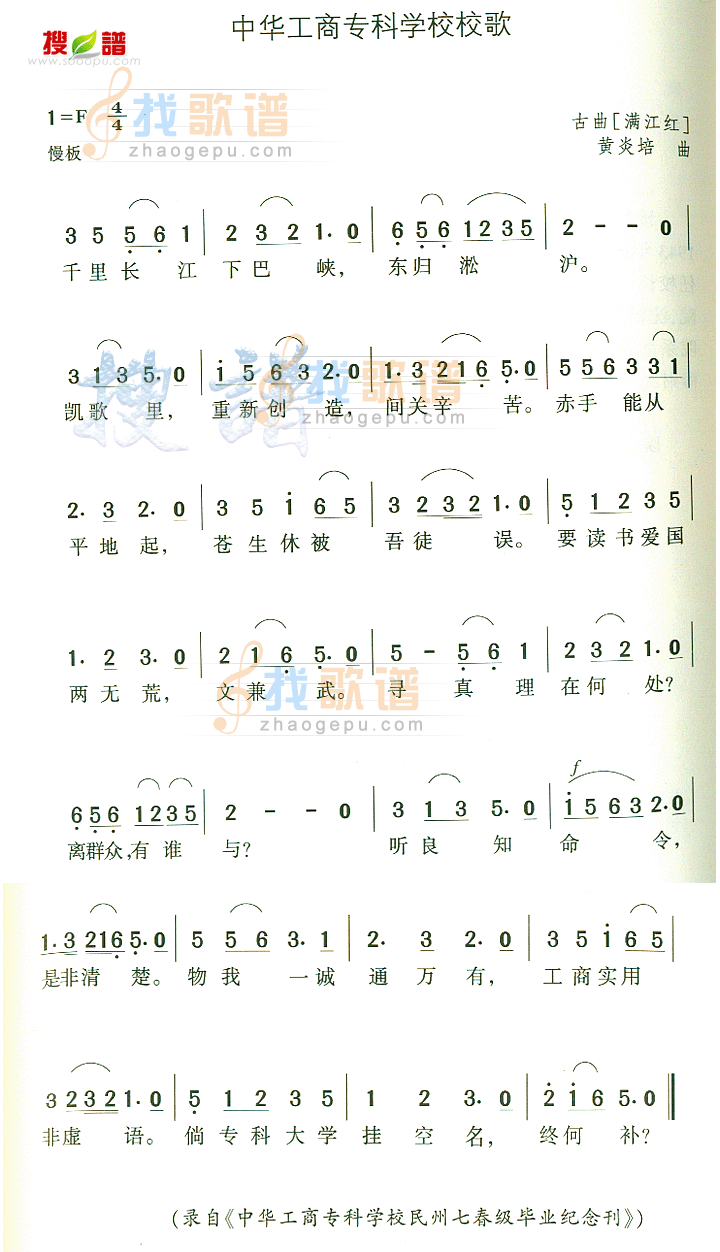 中华工商专科学校校歌
搜谱
www.sooopu.com
1=F 4/4
找歌谱
zhaogepu.com
古曲[满江红]
慢板
黄炎培 曲
3 5 5 6 1 | 2 3 2 1· 0 | 6 5 6 1 2 3 5 | 2 - - 0
千里长江下巴峡，东归淞沪。
3 1 3 5· 0 | i 5 6 3 2· 0 | 1· 3 2 1 6 5· 0 | 5 5 6 3 3 1
凯歌里，重新创造，间关辛苦。赤手能从
搜谱
找歌谱
zhaogepu.com
2· 3 2· 0 | 3 5 i 6 5 | 3 2 3 2 1· 0 | 5 1 2 3 5
平地起，苍生休被吾徒误。要读书爱国
1· 2 3· 0 | 2 1 6 5· 0 | 5 - 5 6 1 | 2 3 2 1· 0
两无荒，文兼武。寻真理在何处？
找歌谱
zhaogepu.com
f
6 5 6 1 2 3 5 | 2 - - 0 | 3 1 3 5· 0 | i 5 6 3 2· 0
离群众，有谁与？听良知命令，
1· 3 2 1 6 5· 0 | 5 5 6 3· 1 | 2· 3 2· 0 | 3 5 i 6 5
是非清楚。物我一诚通万有，工商实用
3 2 3 2 1· 0 | 5 1 2 3 5 | 1 2 3· 0 | 2 i 6 5· 0
非虚语。倘专科大学挂空名，终何补？
(录自《中华工商专科学校民州七春级毕业纪念刊》)